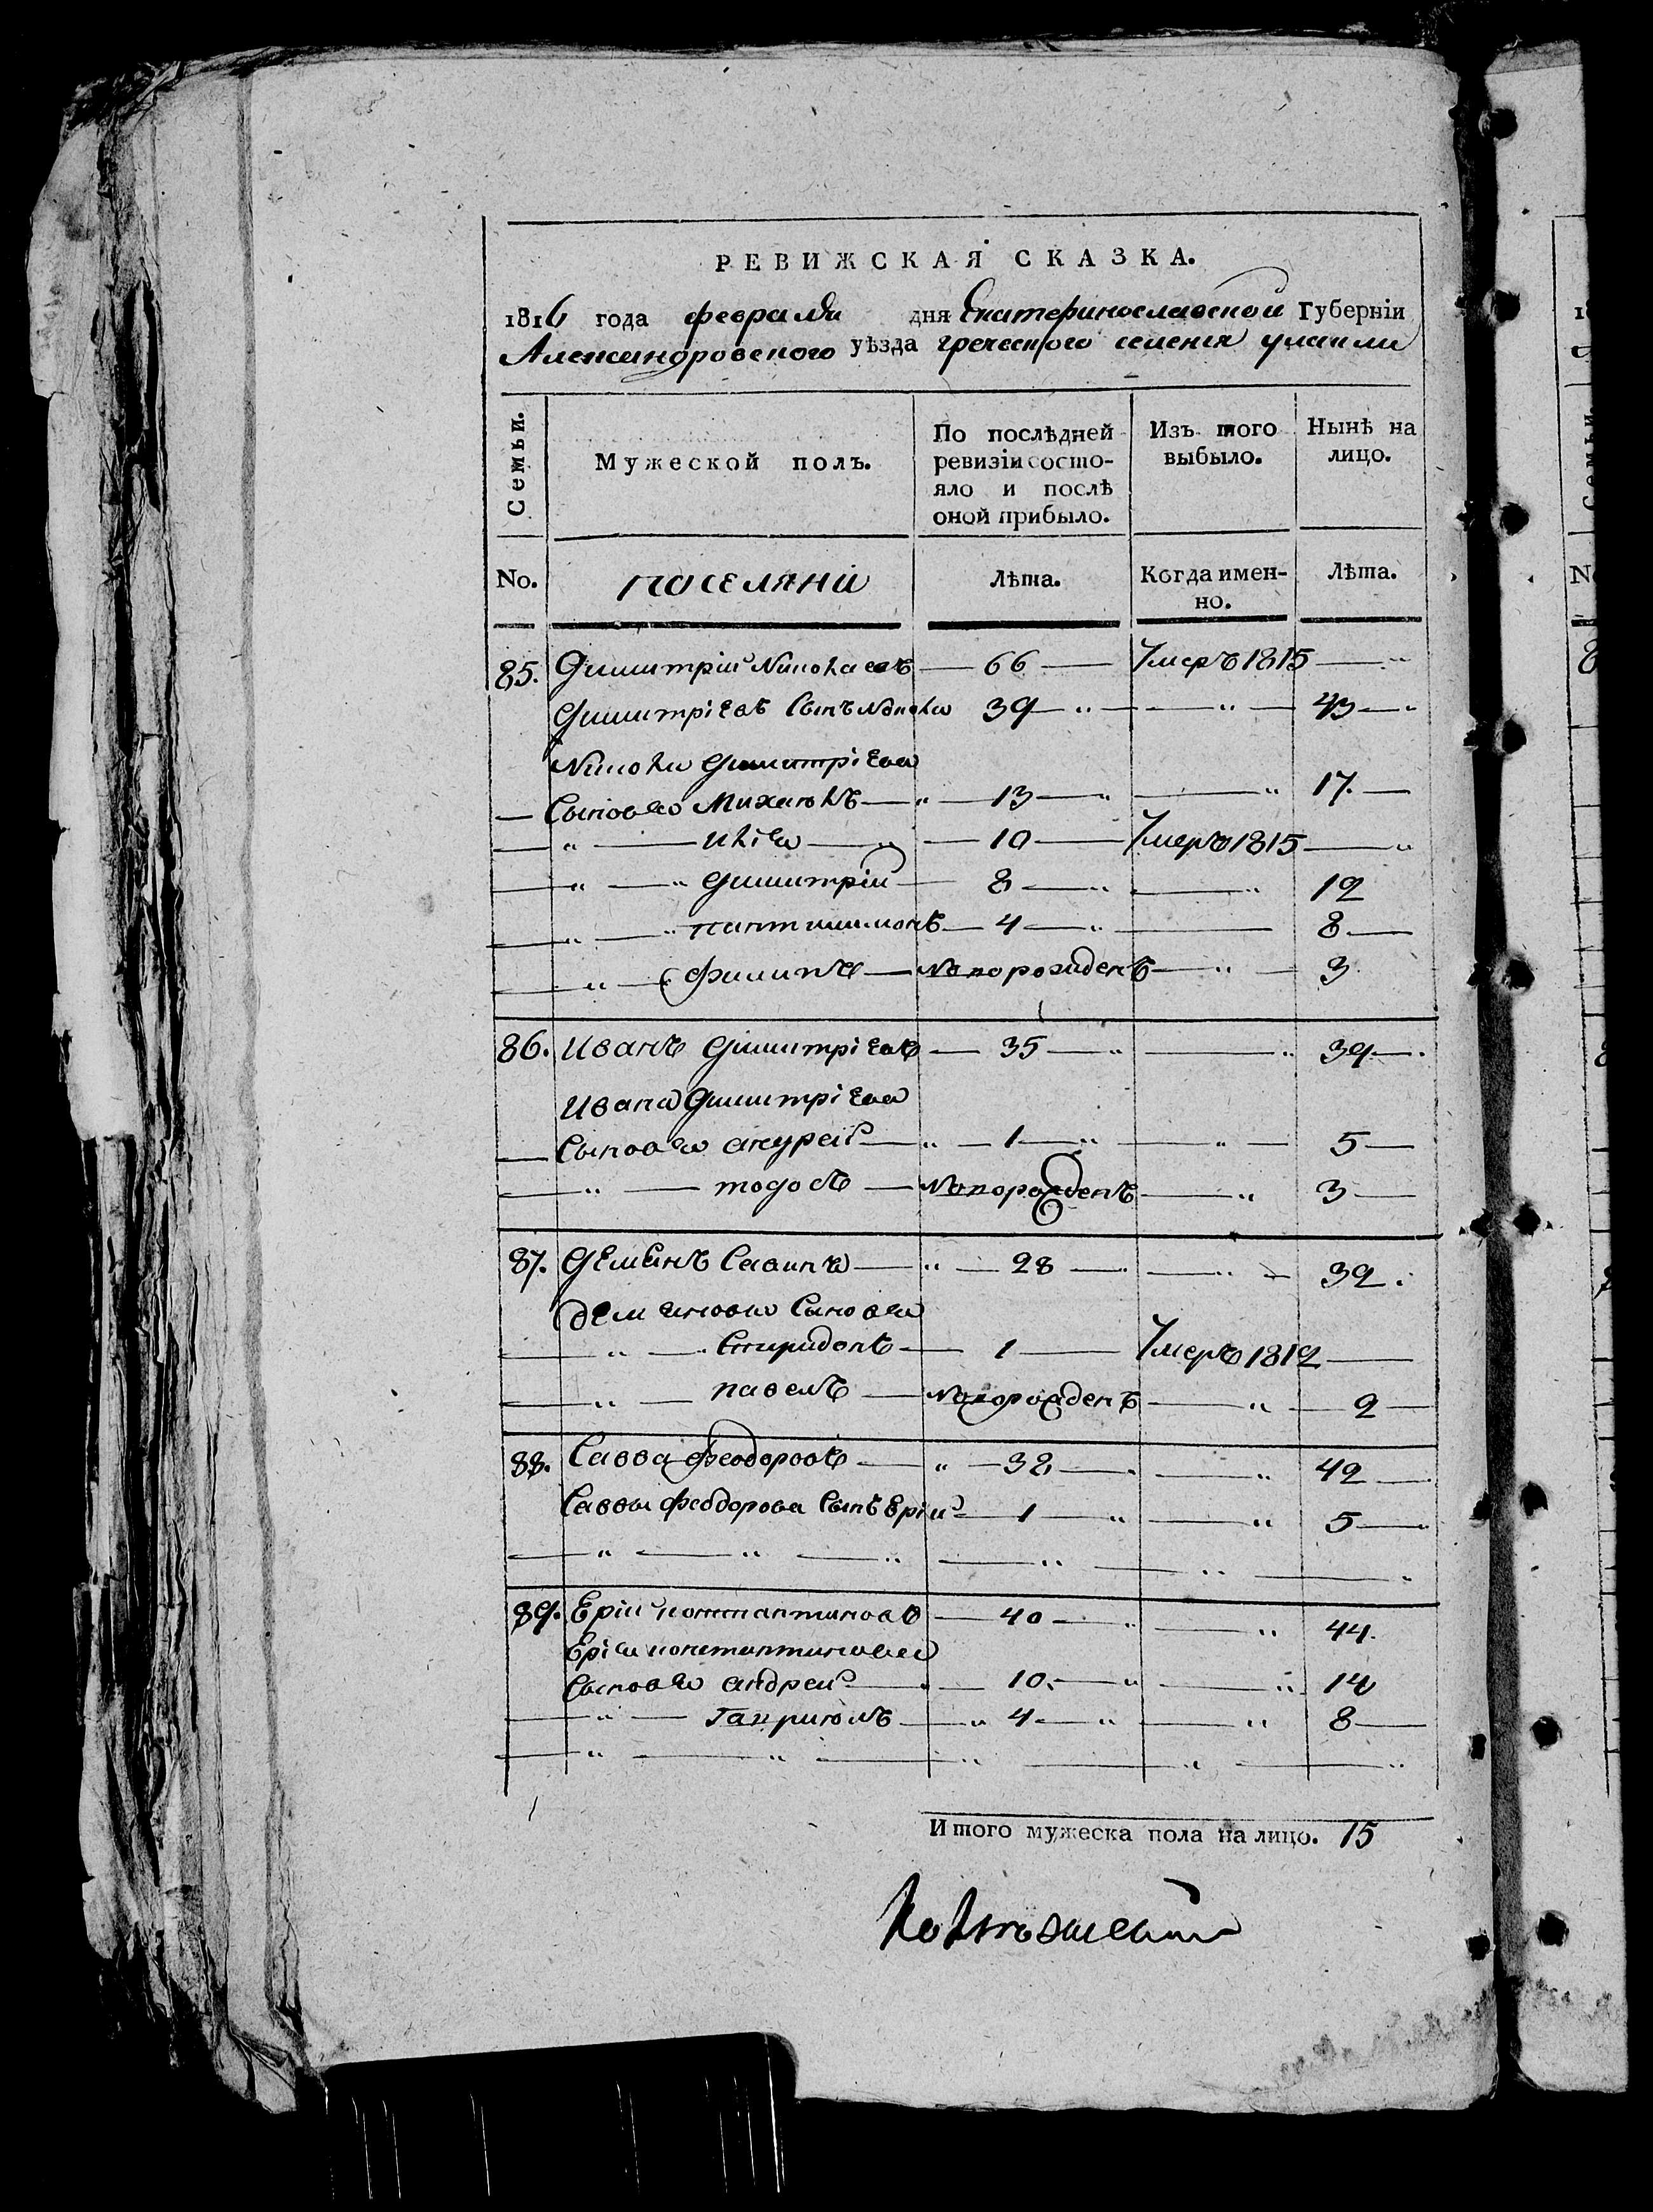 РЕВИЖСКАЯ СКАЗКА.
1816 года февраля дня Екатеринославской Губерніи
Александровского уѣзда греческого селенія улаклы
Семьи.
Мужеской полъ.
По послѣдней ревизіи состояло и послѣ оной прибыло.
Изъ того выбыло.
Нынѣ на лицо.
No. поселяни Лѣта. Когда именно. Лѣта.
85. Димитрій Николаевъ — 66 — Умеръ 1815 — „
Димитріевъ сынъ Никола 39 — „ — — „ — 43 — „
Николы Димитріева
— Сыновья Михаилъ — „ — 13 — „ — „ 17. —
— „ — Илія — „ — 10 — Умеръ 1815 — „
— „ — „ Димитрій — 8 — „ — „ 12
— „ — „ пантилимонъ — 4 — „ — 8 —
— „ — Филипъ — Новорожденъ — „ — 3
86. Иванъ Димитріевъ — 35 — „ — „ 39 — „
Ивана Димитріева
— Сыновья андрей — „ — 1 — „ — „ — 5 —
— „ — тодосъ — Новорожденъ — „ 3 —
87. Демянъ Савинъ — „ — 28 — „ — „ — 32 .
демьяновы Сыновья
— „ — „ Спиридонъ — 1 — Умеръ 1812 —
— „ — павелъ — Новорожденъ — „ — 2 —
88. Савва Феодоровъ — „ — 38 — „ — „ 42 — „
Саввы Феодорова Сынъ Юрій — 1 — „ — „ 5 — „
— „ — „ — „ — „ — „ — „
89. Юрій константиновъ — 40 — „ — „ 44.
Юрія константинова
Сыновья андрей — 10. — „ — „ 14
— „ — Гавриилъ — „ 4 — „ — „ 8 —
— „ — „ — „ — „ — „
Итого мужеска пола на лицо. 15